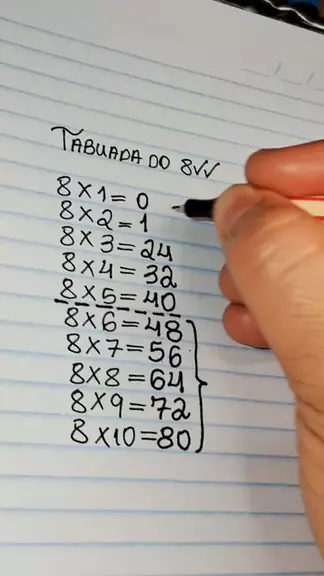 TABUADA DO 8✓✓
8×1=0
8×2=1
8×3=24
8×4=32
8×5=40
8×6=48
8×7=56
8×8=64
8×9=72
8×10=80